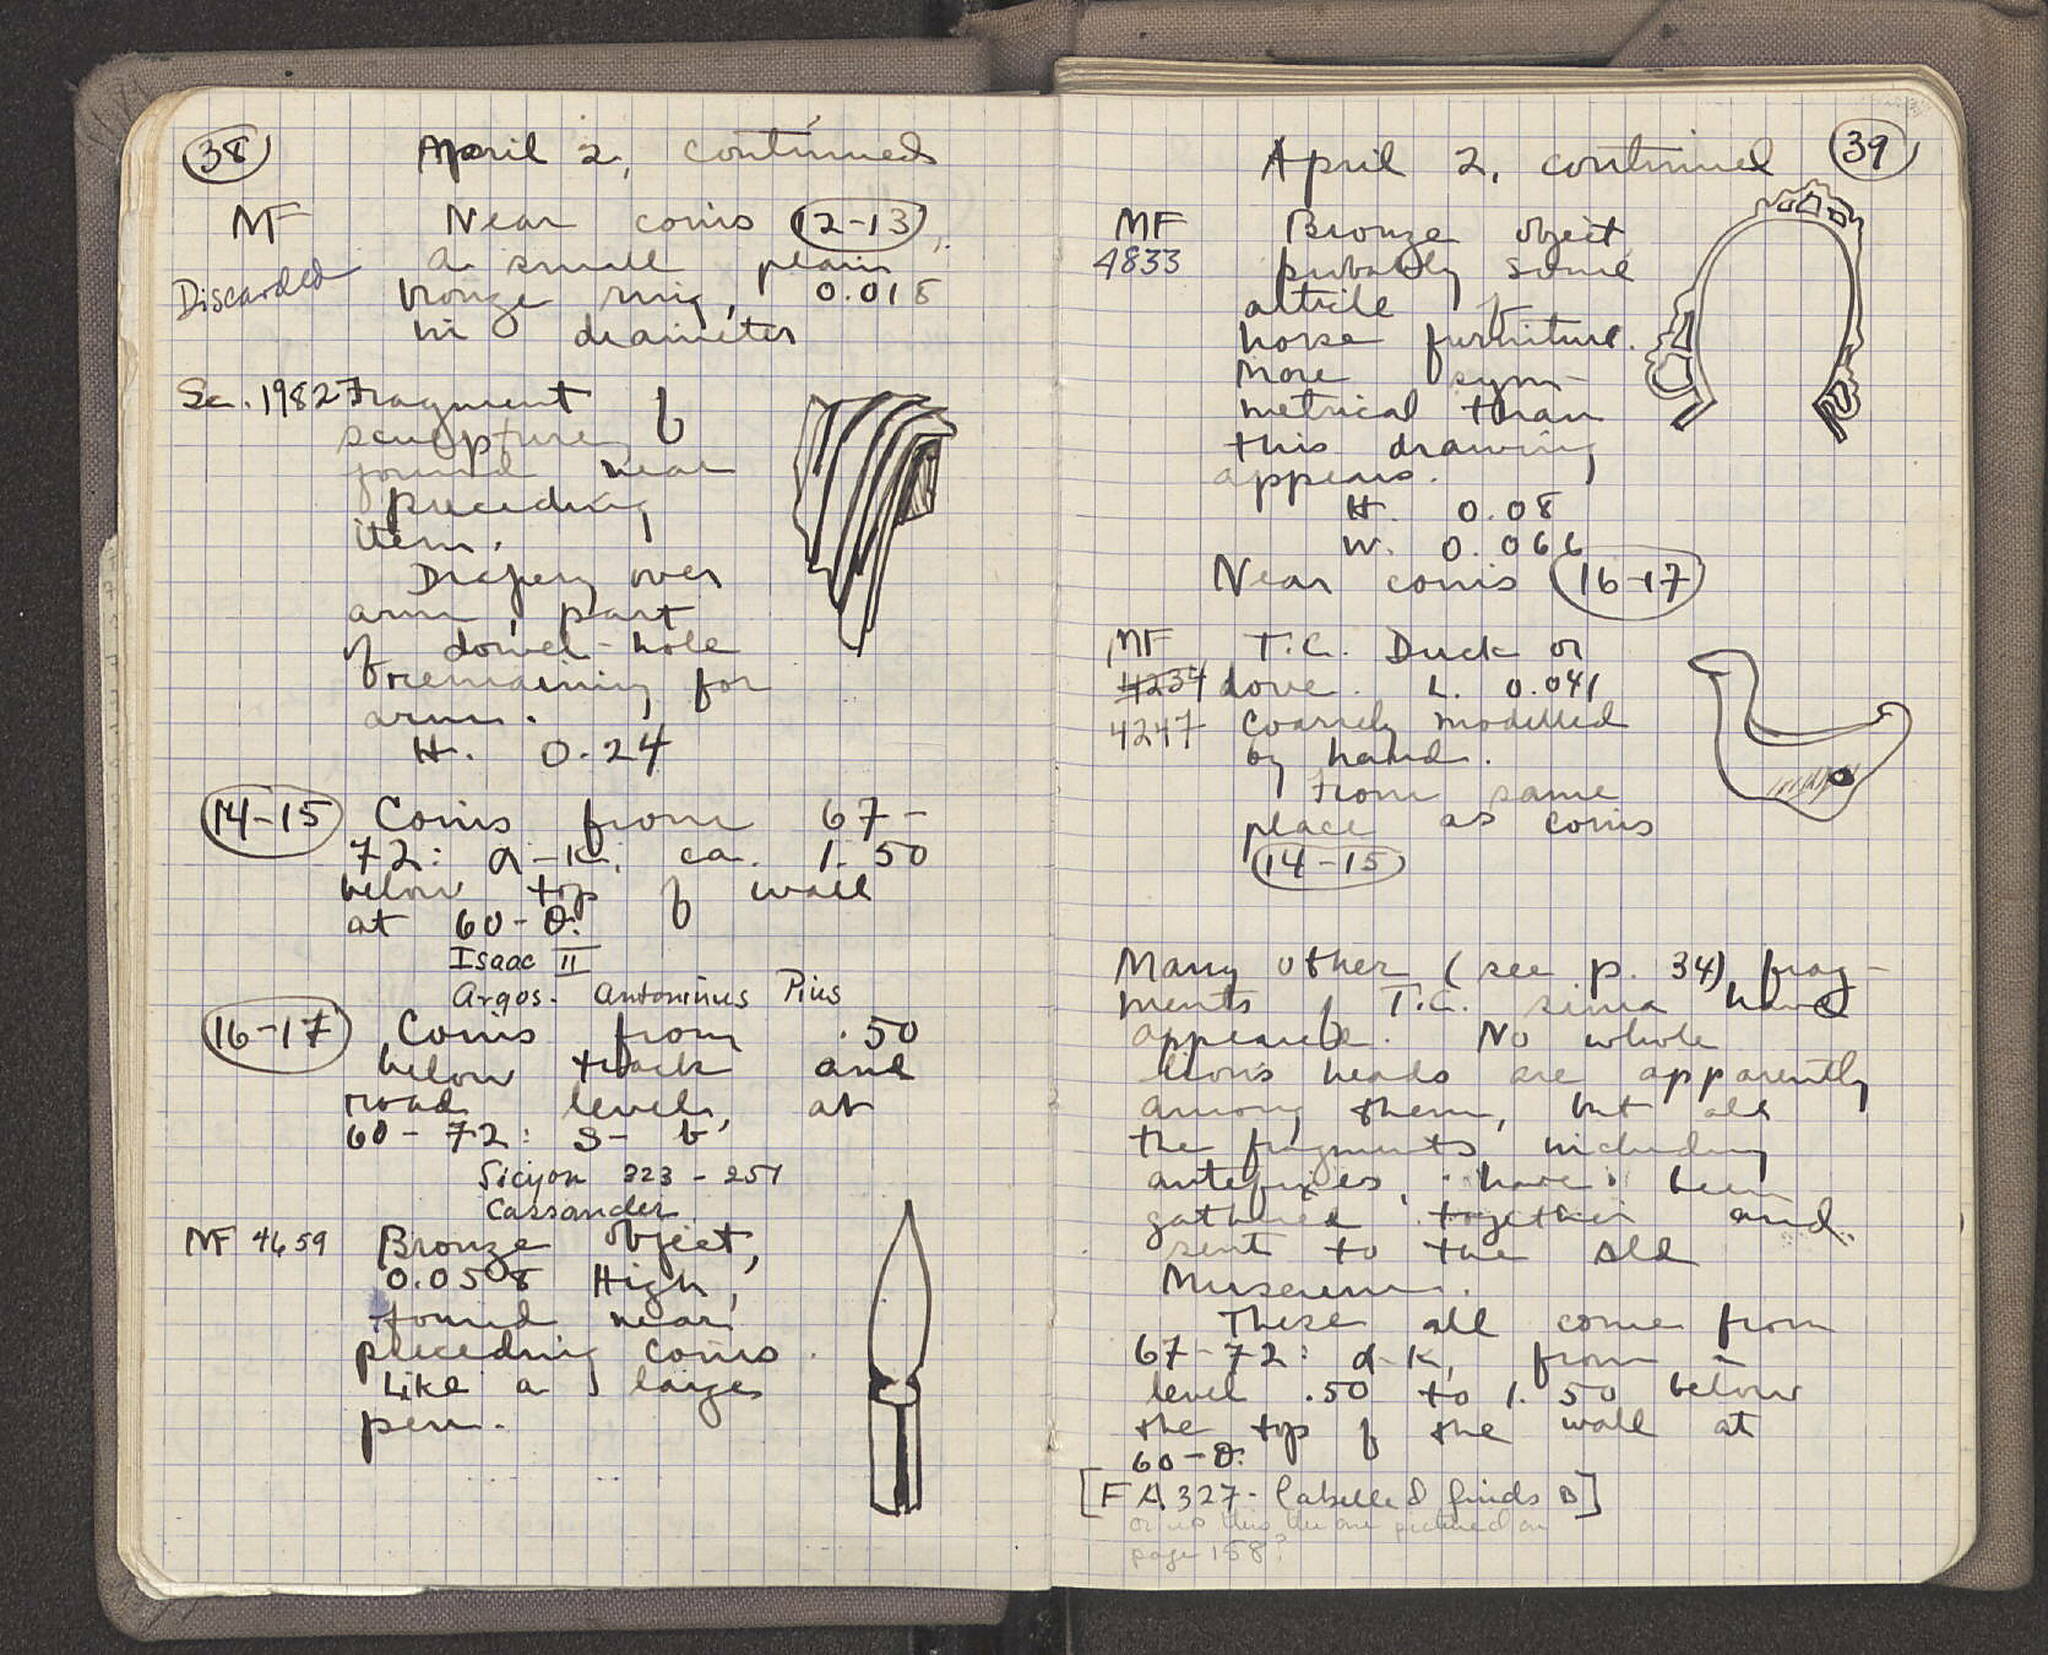 38
April 2, continued
MF Near coins 12-13,
Discarded
a small plain
bronze ring, 0.018
in diameter
Sc. 1982 Fragment of
sculpture
found near
preceding
item.
Drapery over
arm, part
of dowel-hole
remaining for
arm.
H. 0.24
14-15 Coins from 67-
72: α-κ, ca. 1.50
below top of wall
at 60-θ.
Isaac II
Argos. Antoninus Pius
16-17 Coins from .50
below track and
road level, at
60-72:
Sicyon 323-251
Cassander
MF 4659 Bronze object,
0.058 High,
found near
preceding coins.
Like a large
pen.
39
April 2, continued
MF Bronze object
4833 probably some
article of
horse furniture.
More sym-
metrical than
this drawing
appears.
H. 0.08
W. 0.066
Near coins 16-17
MF T.C. Duck or
4234 dove. L. 0.041
4247 Coarsely modelled
by hand.
From same
place as coins
14-15
Many other (see p. 34) frag-
ments of T.C. sima have
appeared. No whole
lions heads are apparently
among them, but all
the fragments including
antefixes, have been
gathered together and
sent to the old
Museum.
These all come from
67-72: α-κ, from
level .50 to 1.50 below
the top of the wall at
60-θ.
[FA 327- labelled finds B]
or is this the one pictured on
page 158?